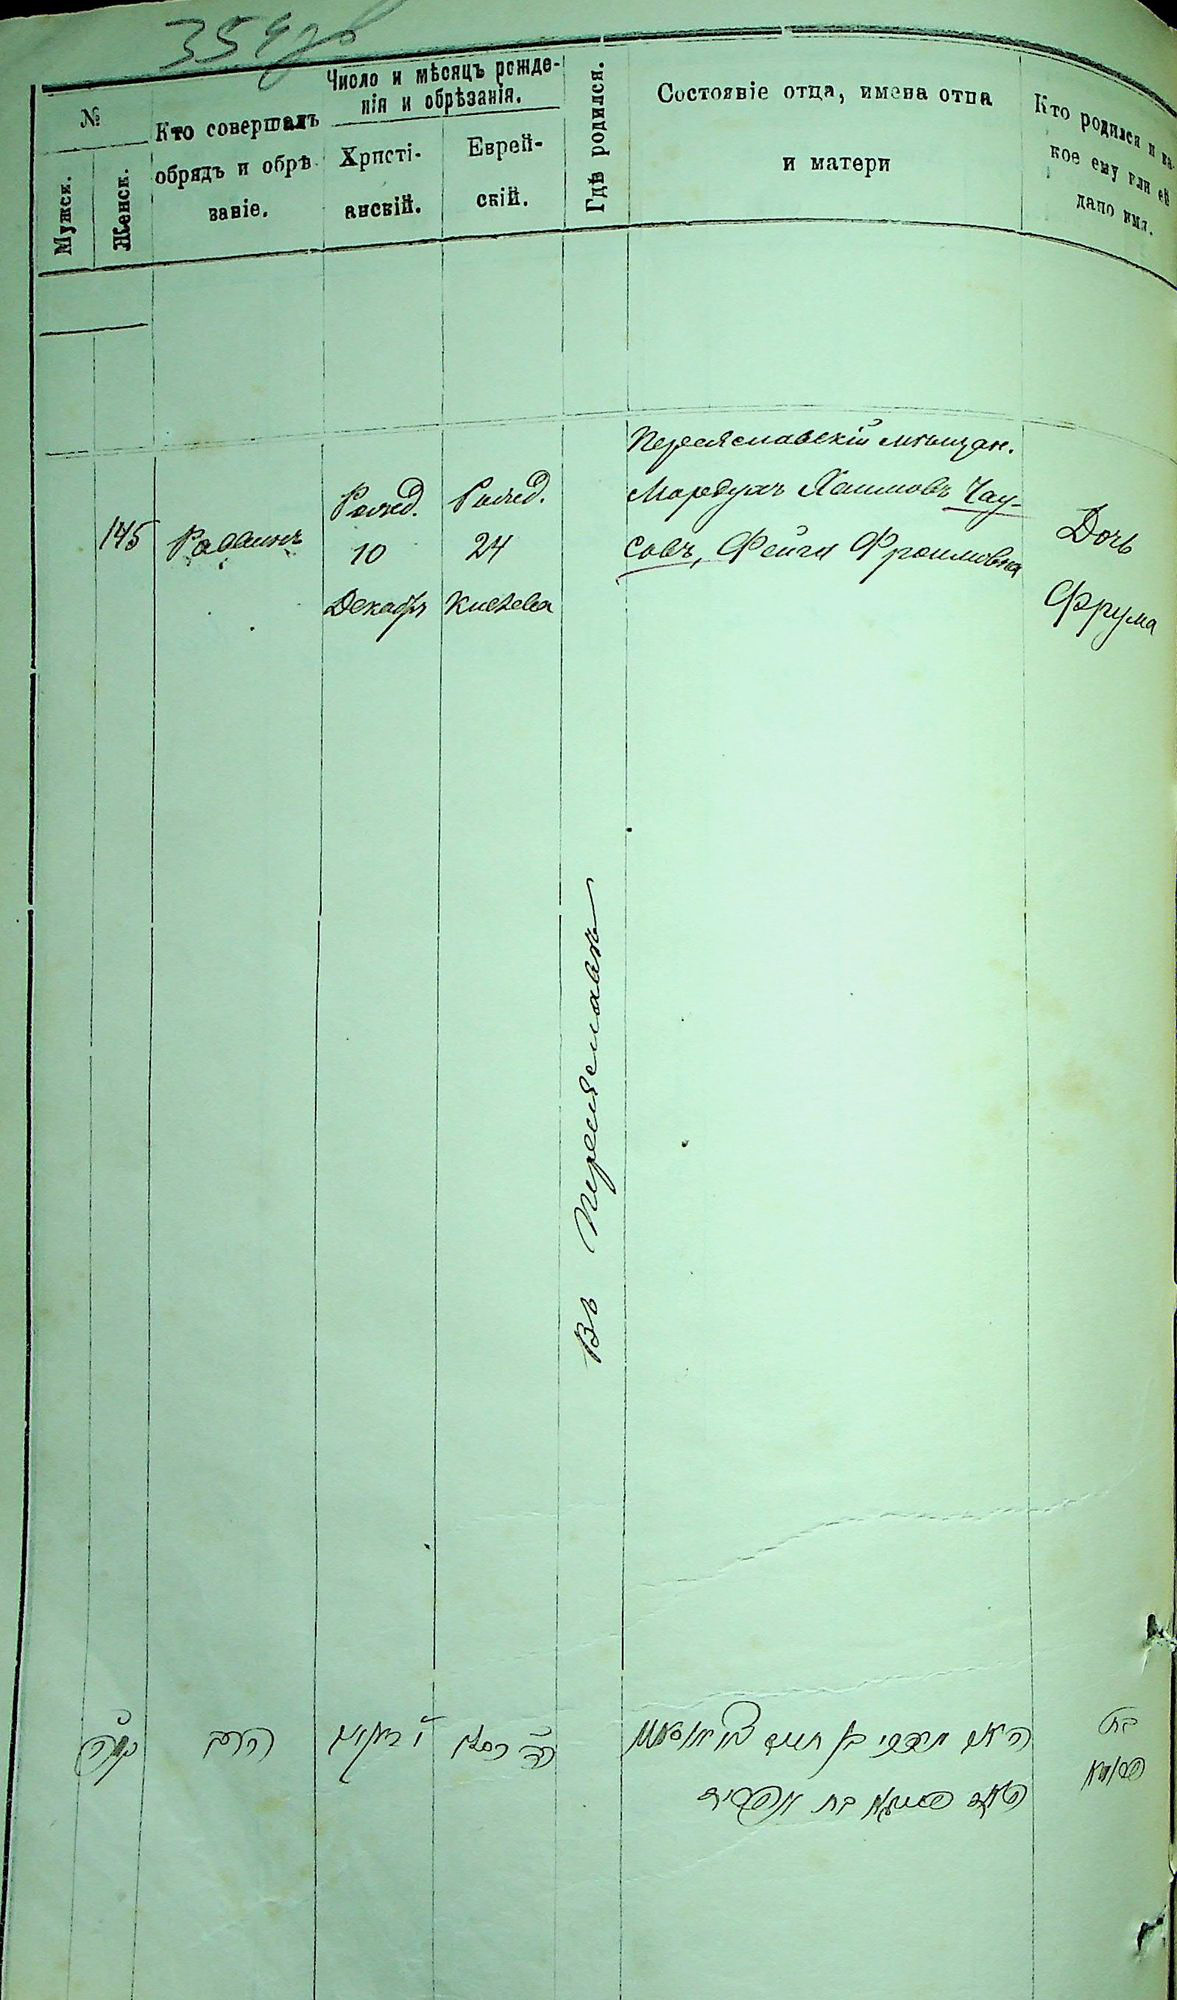 354
№
Мужск.
Женск.
Кто совершалъ
обрядъ и обрѣ
заніе.
Число и мѣсяцъ рожде-
нія и обрѣзанія.
Христі-
анскій.
Еврей-
скій.
Гдѣ родился.
Состояніе отца, имена отца
и матери
Кто родился и ка-
кое ему или ей
дано имя.
145
Раввинъ
Рожд.
10
Декабр
Рожд.
24
Кислева
Въ Переяславѣ
Переяславскій мѣщан.
Мордухъ Хаимовъ Чау-
совъ, Фейга Фроимовна
Дочь
Фрума
הרב
בת
פרומא